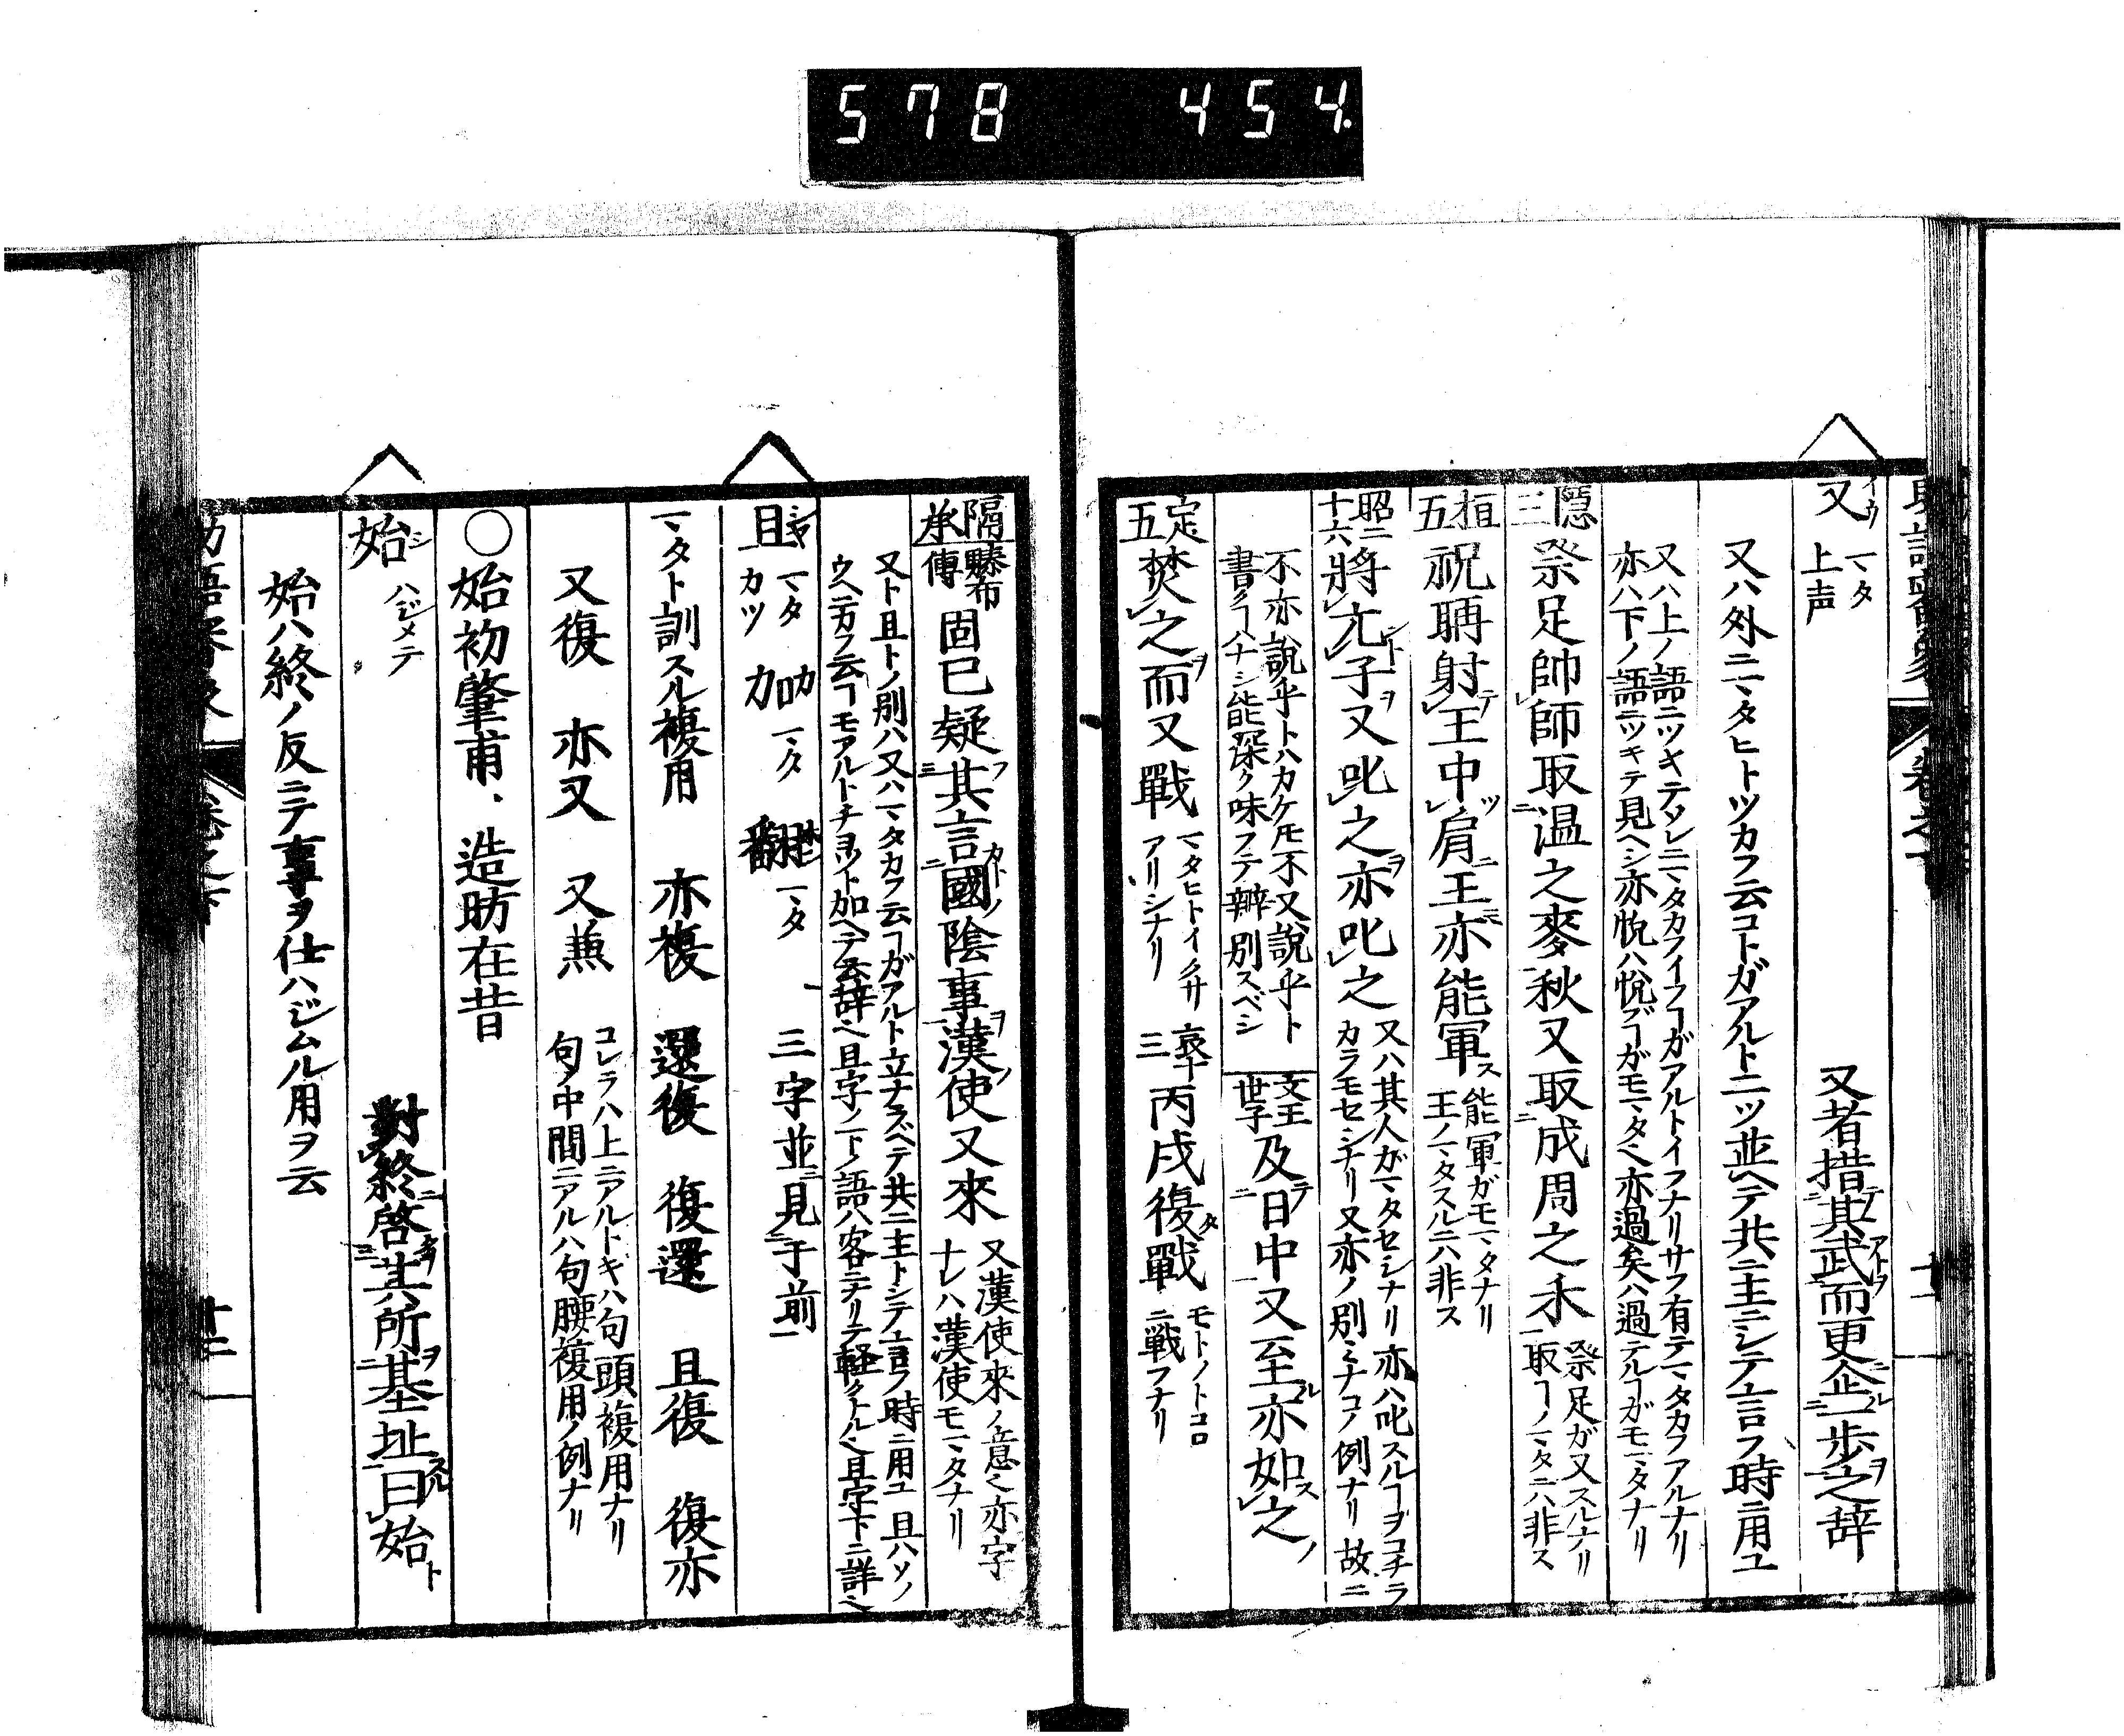 578 454.
又 イウ マタ 上声 又者措其武而更企一歩之辞
又ハ外ニマタヒトツカフ云コトガアルト二ツ並ヘテ共ニ主ニシテ言フ時ニ用ユ
又ハ上ノ語ニツキテソレニマタカフイフヿガアルトイフナリサフ有テマタカフアルナリ
亦ハ下ノ語ニツキテ見ヘシ亦悦ハ悦ブヿガモマタ亦過矣ハ過テルヿガモマタナリ
隱三 祭足帥師取温之麥秋又取成周之禾 祭足ガ又スルナリ
取ヿノマタニハ非ス
桓五 祝聃射王中肩王亦能軍 能軍ガモマタナリ
王ノマタスルニハ非ス
昭二十六 將亢子又叱之亦叱之 又ハ其人ガマタセシナリ亦ハ叱スルヿヲコチラ
カラモセシナリ又亦ノ別ミナコノ例ナリ故ニ
不亦說乎トハカケ𪜈不又說乎ト
書クヿハナシ能深ク味フテ辨別スベシ
文王世子 及日中又至亦如之
定五 焚之而又戰 マタヒトイクサ
アリシナリ
哀十三 丙戌復戰 モトノトコロ
ニ戦フナリ
隔承 黥布傳 固已疑其言國陰事漢使又來 又漢使來ノ意亦字
ナレハ漢使モマタナリ
又ト且トノ別ハ又ハマタカフ云ヿガアルト立ナラベテ共ニ主トシテ言フ時ニ用ユ且ハソノ
ウヘニカフ云ヿモアルトチヨツト加ヘテ云辞且字ノ下ノ語ハ客ニナリテ軽クトル且字下ニ詳
且 シヤ マタ カツ 加 カ マタ 翻 ホン マタ 三字並見于前
マタト訓スル複用 亦複 還復 復還 且復 復亦
又復 亦又 又兼 コレラハ上ニアルトキハ句頭複用ナリ
句ノ中間ニアルハ句腰複用ノ例ナリ
○始初肇甫、造昉在昔
始 シ ハジメテ 對終啓其所基址曰始
始ハ終ノ反ニテ事ヲ仕ハジムル用ヲ云